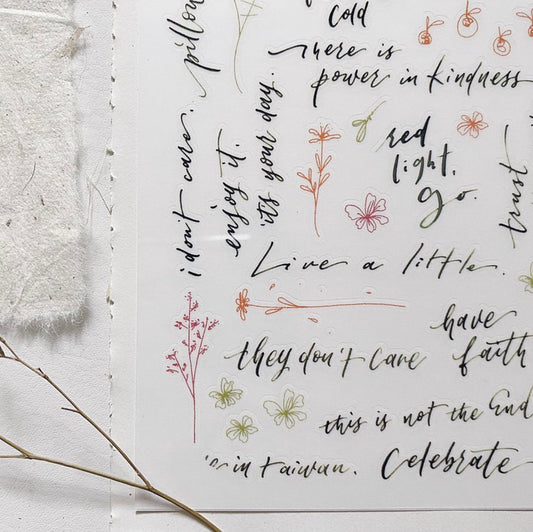 cold
There is
power in kindness
pillow
i don't care.
enjoy it.
it's your day.
red
light.
go.
trust
Live a little.
have
faith
they don't care
this is not the End
in taiwan.
Celebrate